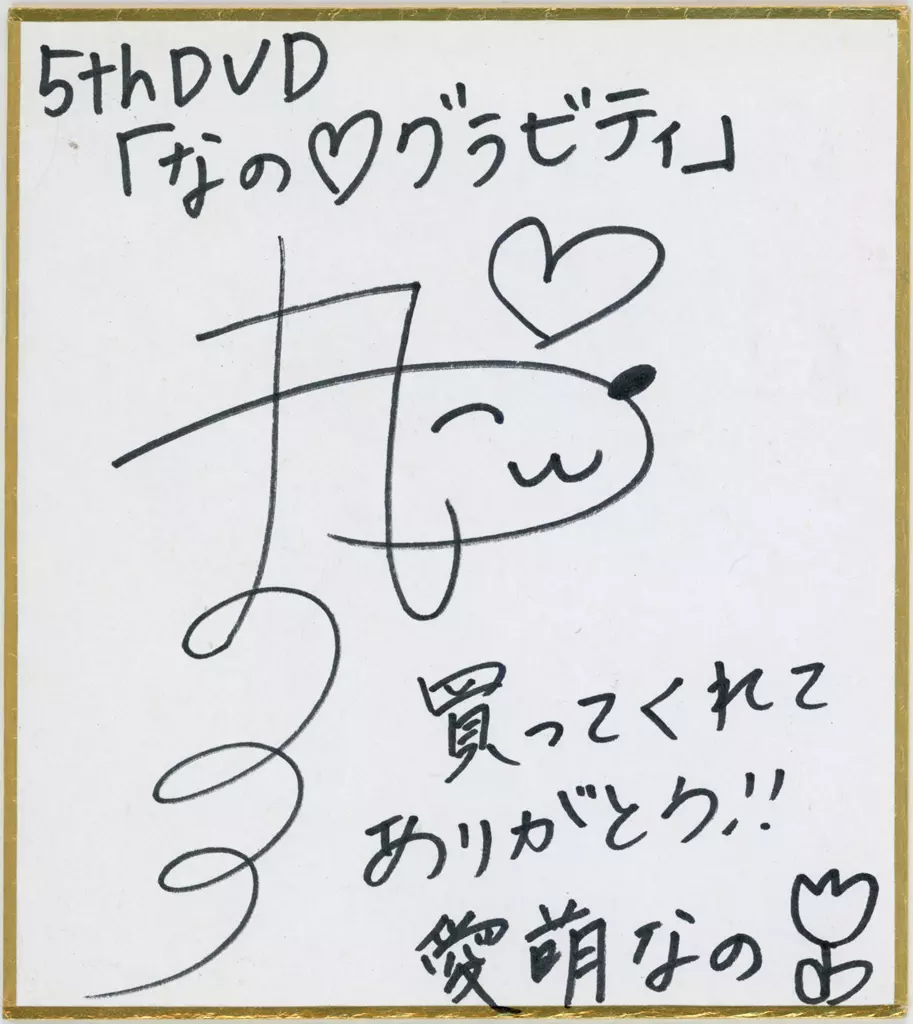 5thDVD
「なの♡グラビティ」
買ってくれて
ありがとう!!
愛萌なの